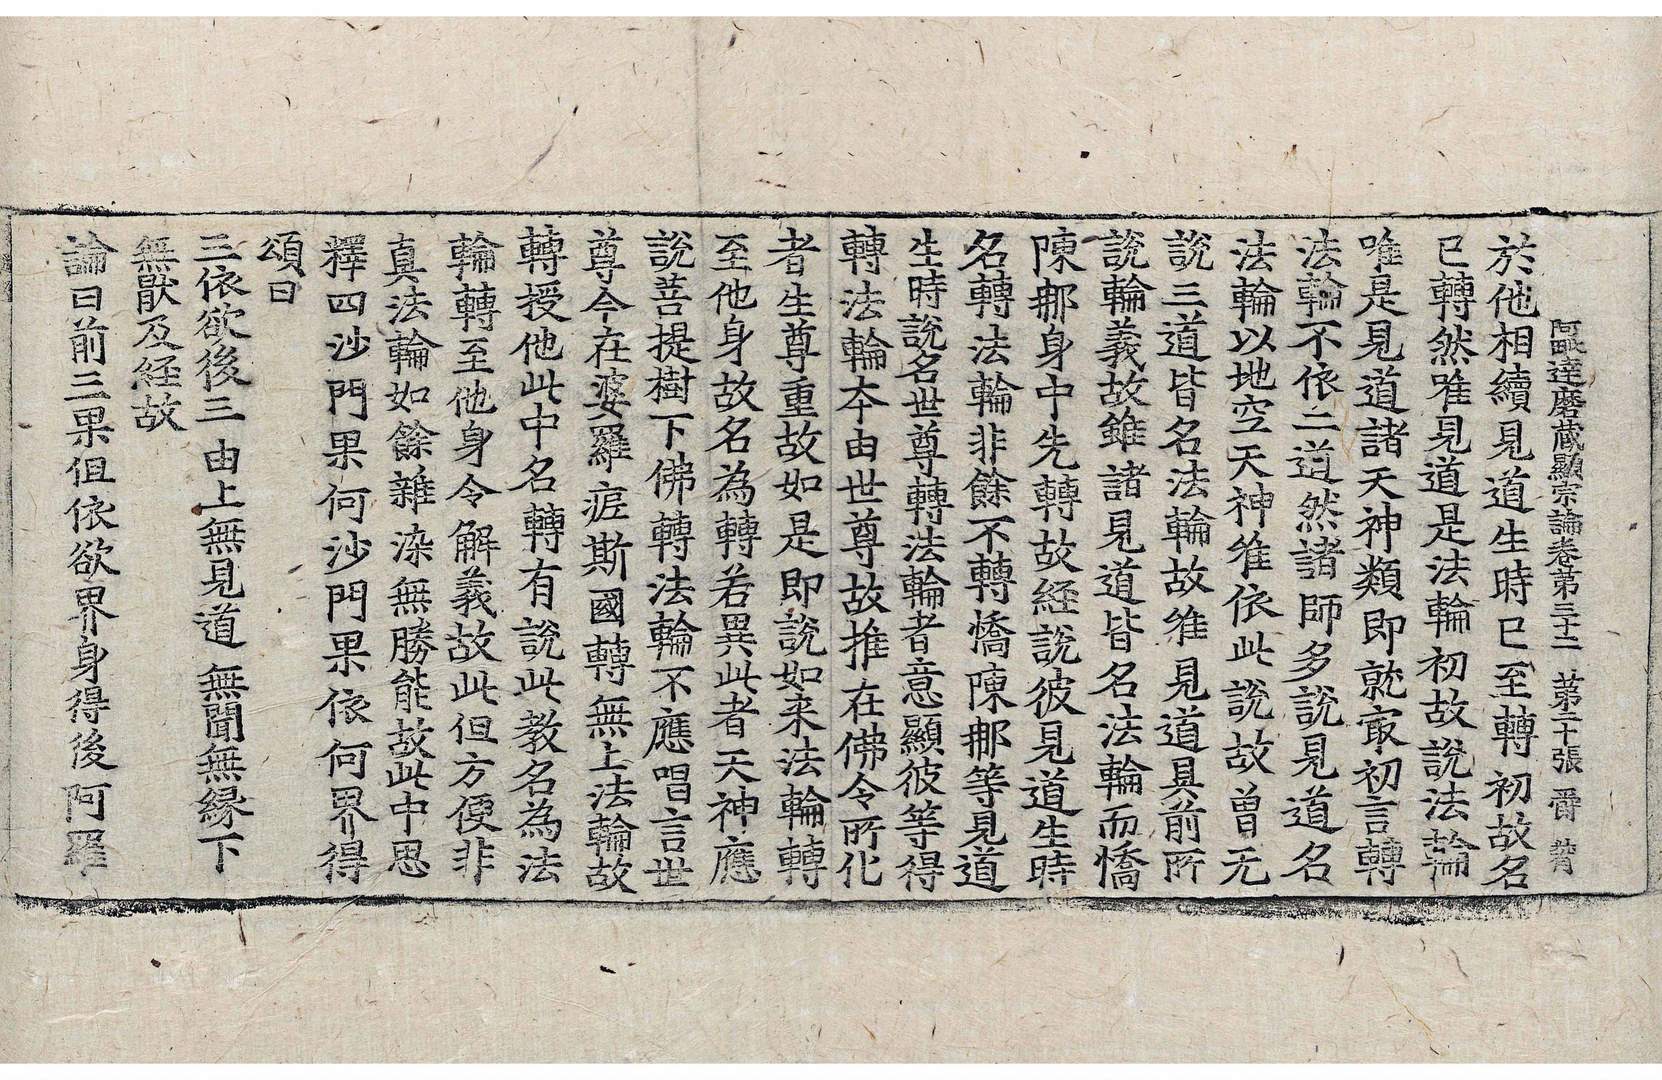 阿毗達磨藏顯宗論卷第三十二　第二十張　爵
於他相續見道生時已至轉初故名
已轉然唯見道是法輪初故說法論
唯是見道諸天神類即就㝡初言轉
法輪不依二道然諸師多說見道名
法輪以地空天神唯依此說故曾无
說三道皆名法輪故唯見道具前所
說輪義故雖諸見道皆名法輪而憍
陳那身中先轉故経說彼見道生時
名轉法輪非餘不轉憍陳那等見道
生時說名世尊轉法輪者意顯彼等得
轉法輪夲由世尊故推在佛令所化
者生尊重故如是即說如来法輪轉
至他身故名為轉若異此者天神應
說菩提樹下佛轉法輪不應唱言世
尊今在婆羅痆斯國轉無上法輪故
轉授他此中名轉有說此教名為法
輪轉至他身令解義故此但方便非
真法輪如餘雜染無勝能故此中思
釋四沙門果何沙門果依何界得
頌曰
三依欲後三　由上無見道　無聞無緣下
無猒及経故
論曰前三果但依欲界身得後阿羅